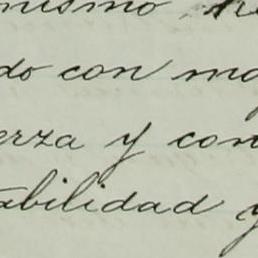 nismo
do con ma
erza y con
abilidad y